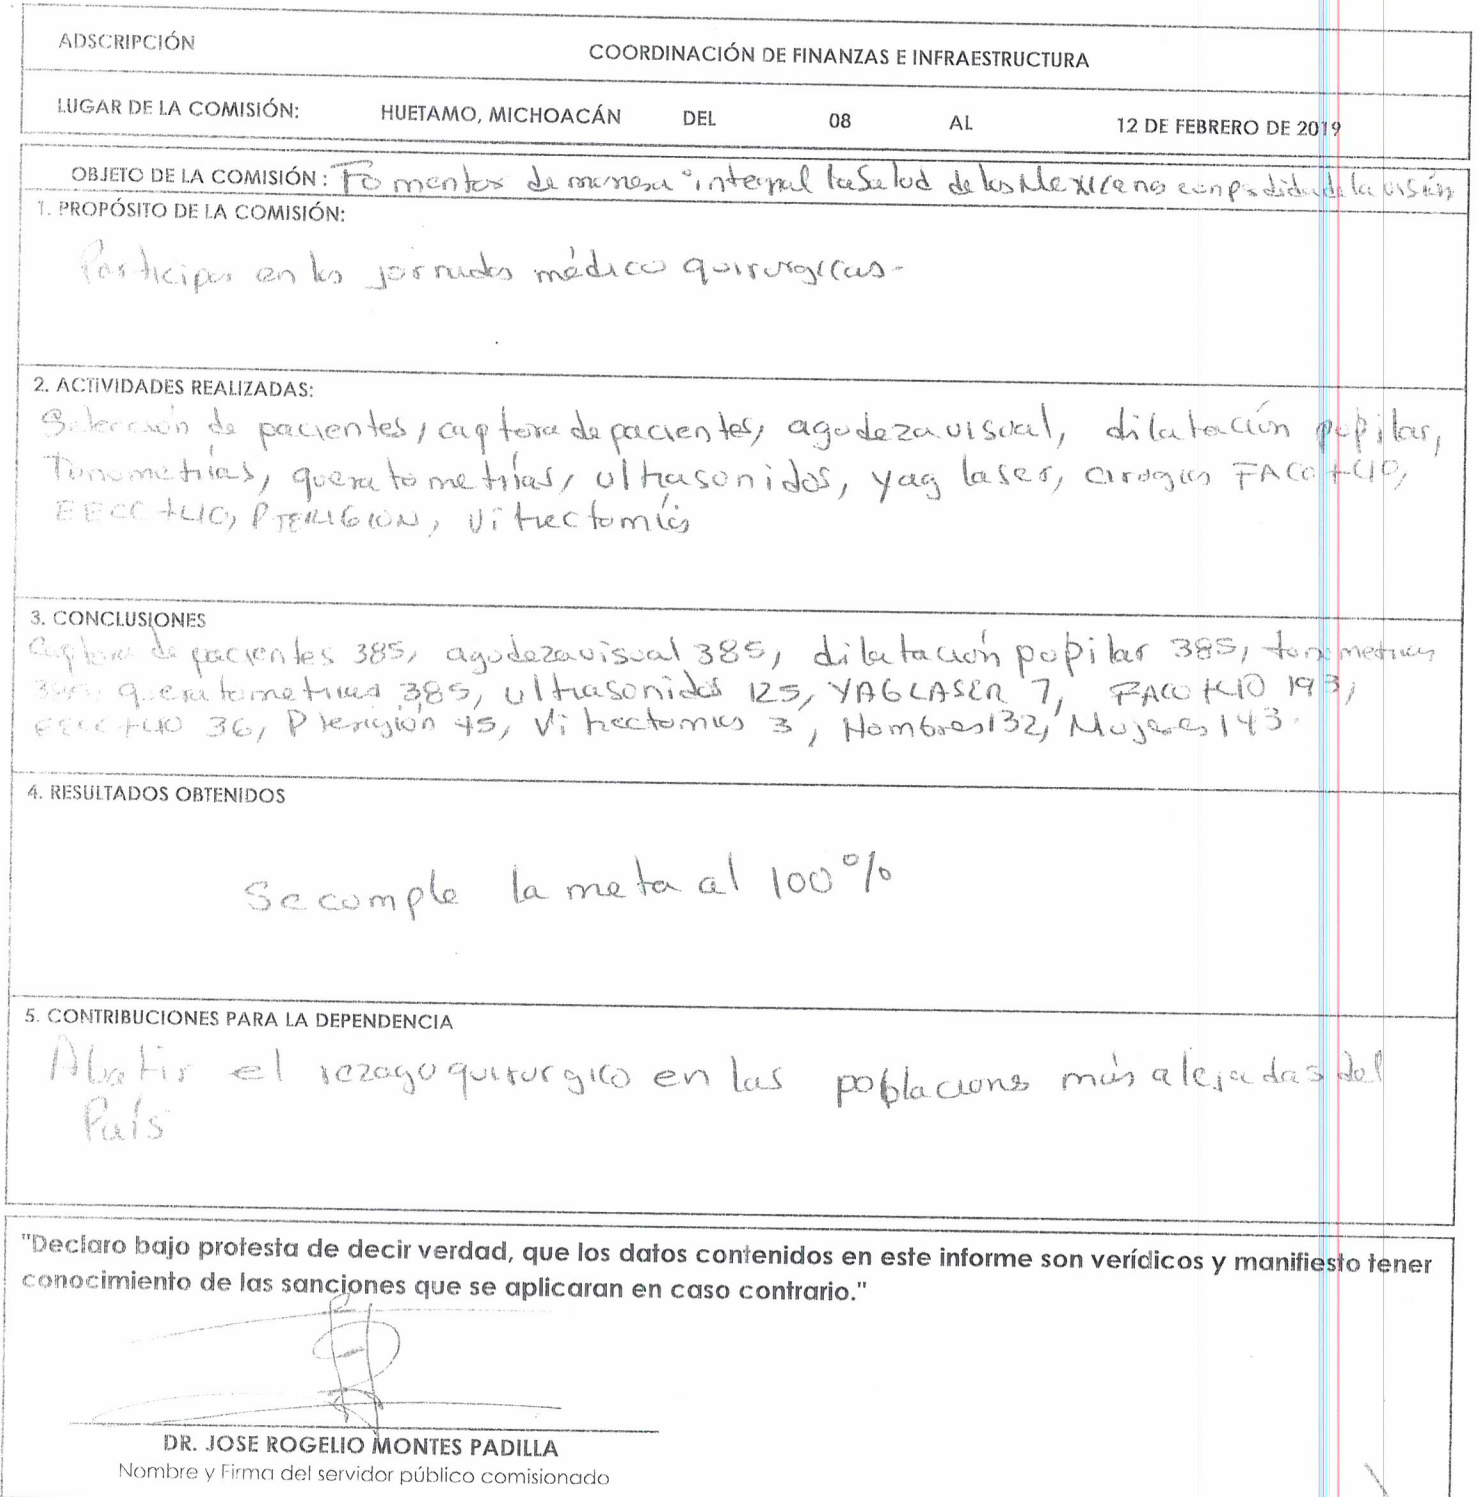 ADSCRIPCIÓN COORDINACIÓN DE FINANZAS E INFRAESTRUCTURA
LUGAR DE LA COMISIÓN: HUETAMO, MICHOACÁN DEL 08 AL 12 DE FEBRERO DE 2019
OBJETO DE LA COMISIÓN: Fomentar de manera integral la Salud de los Mexicanos con perdida de la visión
1. PROPÓSITO DE LA COMISIÓN:
Participar en las jornadas médico quirurgicas.
2. ACTIVIDADES REALIZADAS:
Selección de pacientes, captura de pacientes, agudeza visual, dilatación pupilar,
Tonometrías, queratometrías, ultrasonidos, yag laser, cirugias FACO+LIO,
EECC+LIO, PTERIGION, Vitrectomías
3. CONCLUSIONES
Captura de pacientes 385, agudeza visual 385, dilatación pupilar 385, tonometrias
queratometrias 385, ultrasonidos 125, YAG LASER 7, FACO+LIO 193,
EECC+LIO 36, Pterigión 45, Vitrectomias 3, Hombres 132, Mujeres 143.
4. RESULTADOS OBTENIDOS
Se cumple la meta al 100%
5. CONTRIBUCIONES PARA LA DEPENDENCIA
Abatir el rezago quirurgico en las poblaciones más alejadas del
País
"Declaro bajo protesta de decir verdad, que los datos contenidos en este informe son verídicos y manifiesto tener
conocimiento de las sanciones que se aplicaran en caso contrario."
DR. JOSE ROGELIO MONTES PADILLA
Nombre y Firma del servidor público comisionado